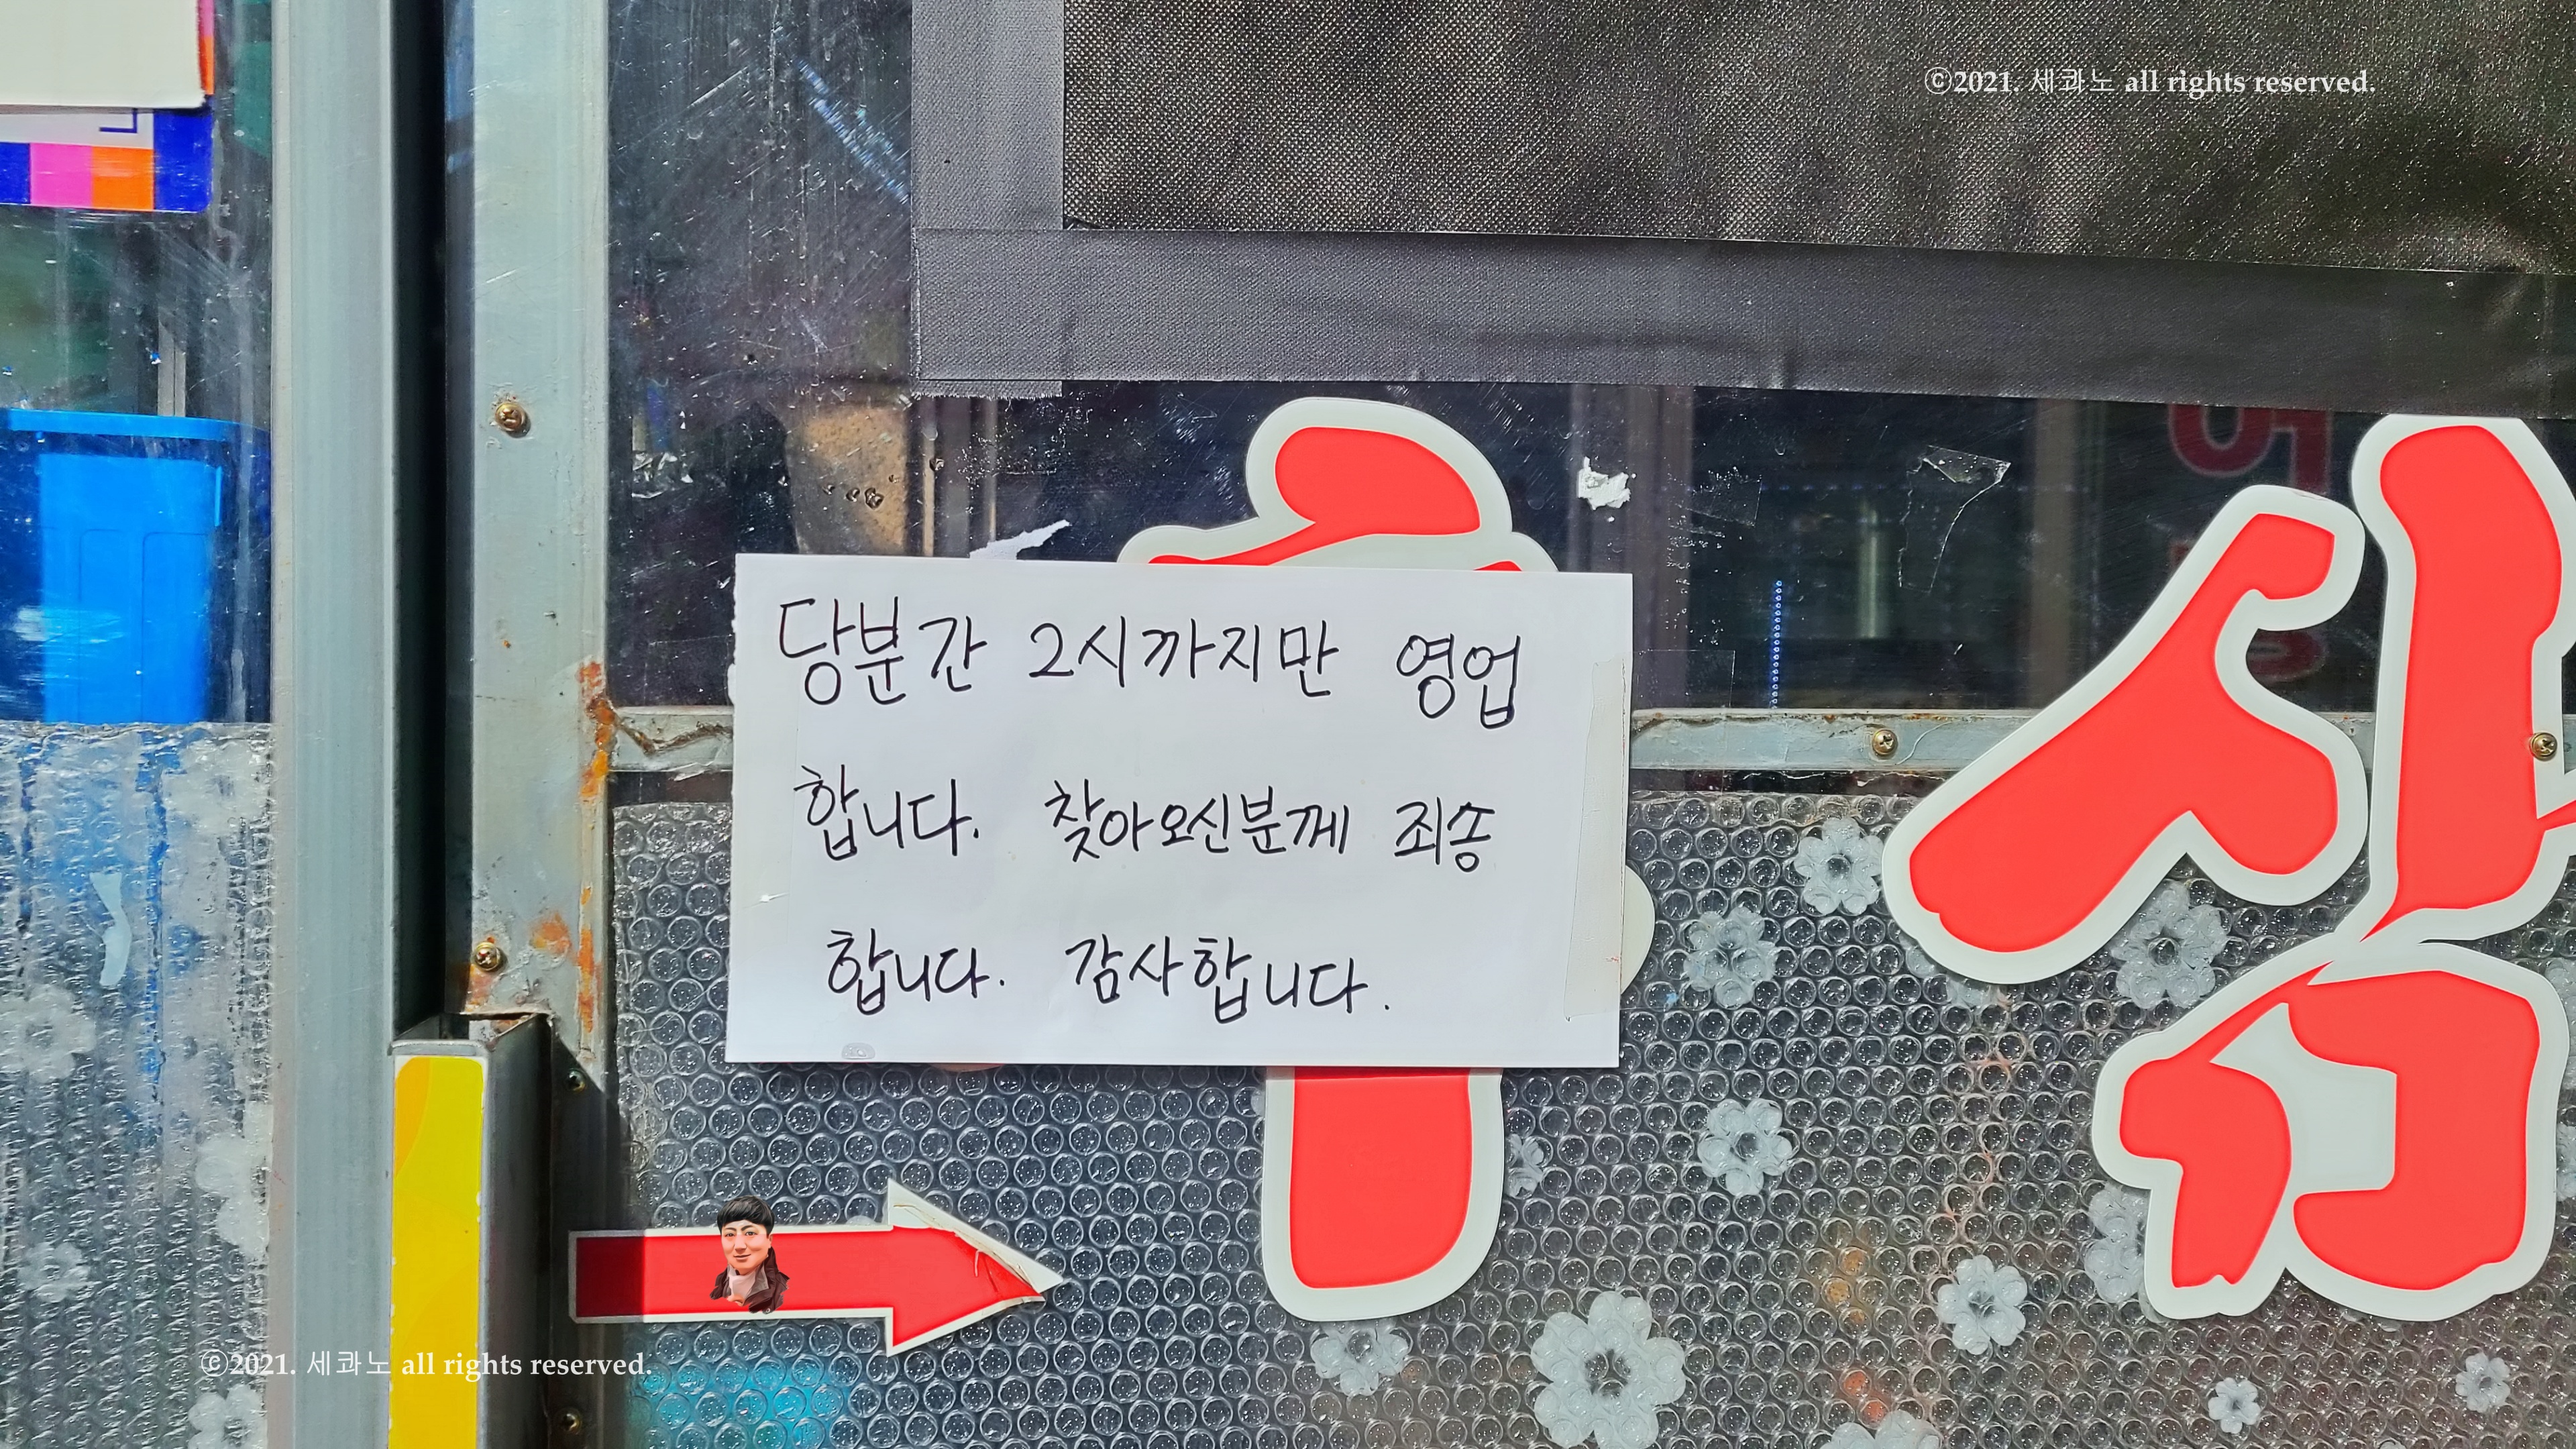 ©2021. 세콰노 all rights reserved.
당분간 2시까지만 영업
합니다. 찾아오신분께 죄송
합니다. 감사합니다.
©2021. 세콰노 all rights reserved.